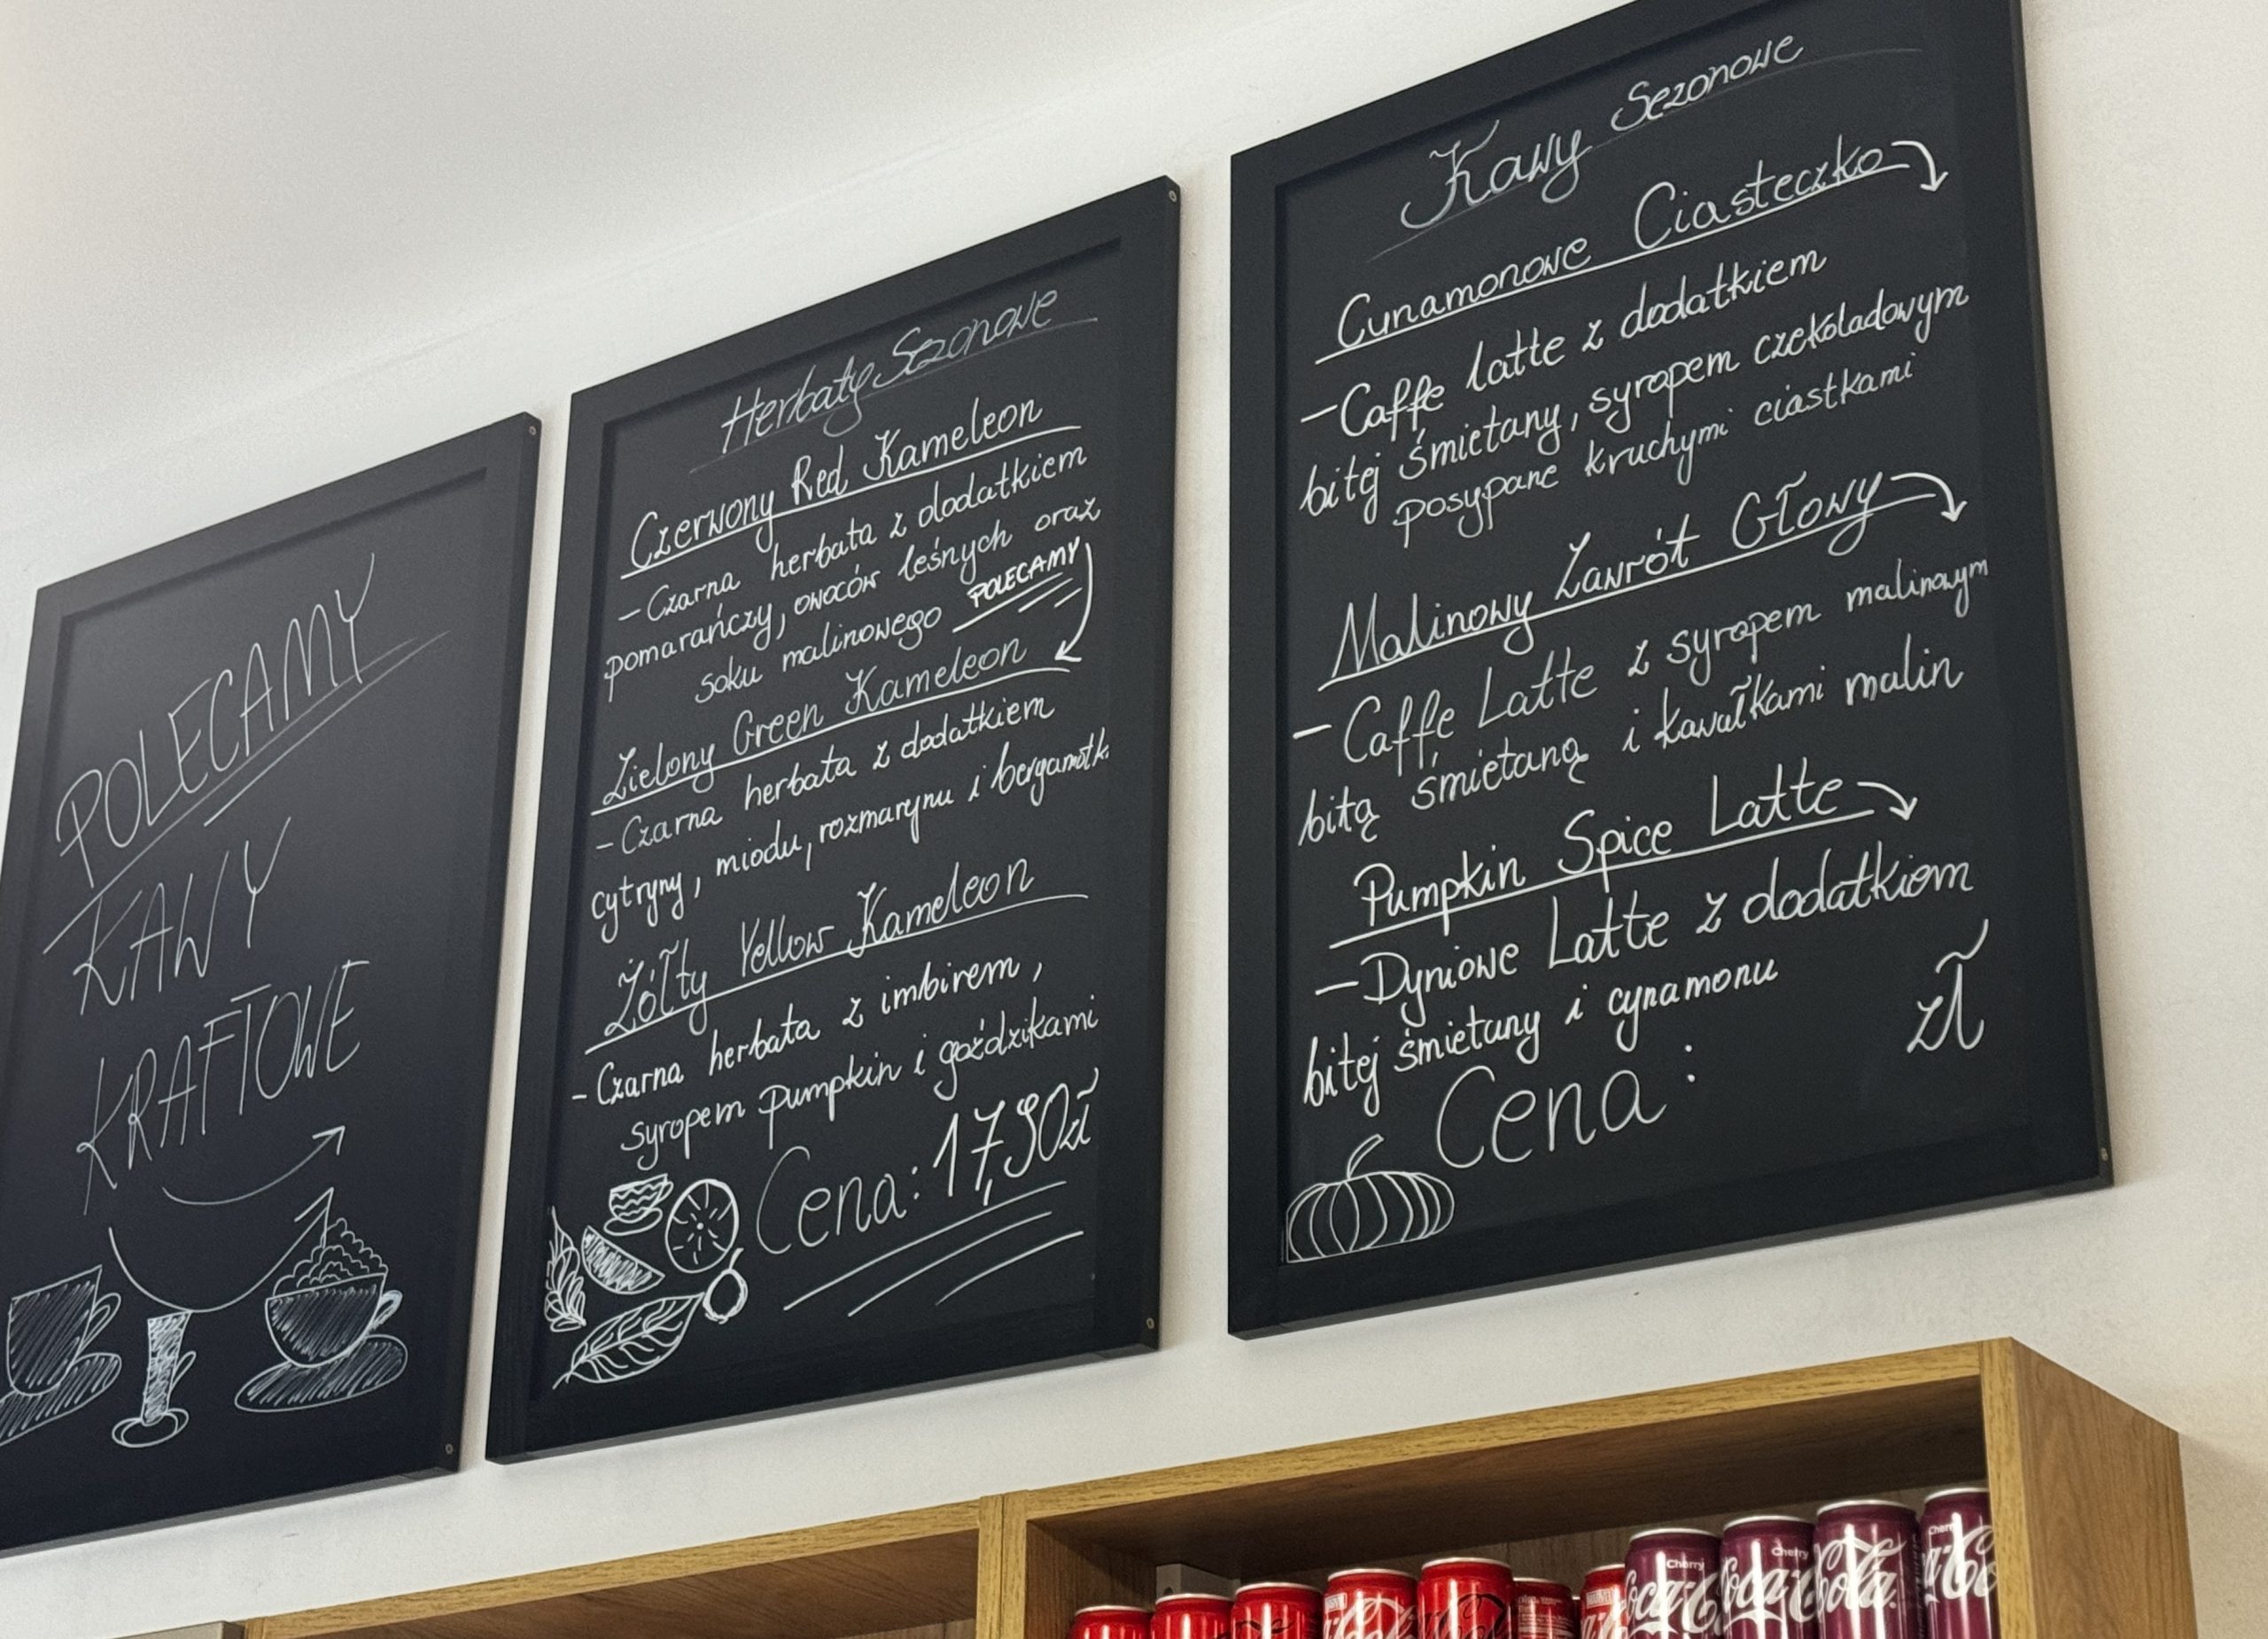 POLECAMY
KAWY
KRAFTOWE
Herbaty Sezonowe
Czerwony Red Kameleon
- Czarna herbata z dodatkiem
pomarańczy, owoców leśnych oraz
soku malinowego POLECAMY
Zielony Green Kameleon
- Czarna herbata z dodatkiem
cytryny, miodu, rozmarynu i bergamotk.
Żółty Yellow Kameleon
- Czarna herbata z imbirem,
syropem pumpkin i goździkami
Cena: 17,90zł
Kawy Sezonowe
Cynamonowe Ciasteczko
- Caffe latte z dodatkiem
bitej śmietany, syropem czekoladowym
posypane kruchymi ciastkami
Malinowy Zawrót Głowy
- Caffe Latte z syropem malinowym
bitą śmietaną i kawałkami malin
Pumpkin Spice Latte
- Dyniowe Latte z dodatkiem
bitej śmietany i cynamonu
Cena: zł
Cherry
Coca-Cola
Cherry
Coca-Cola
Cherry